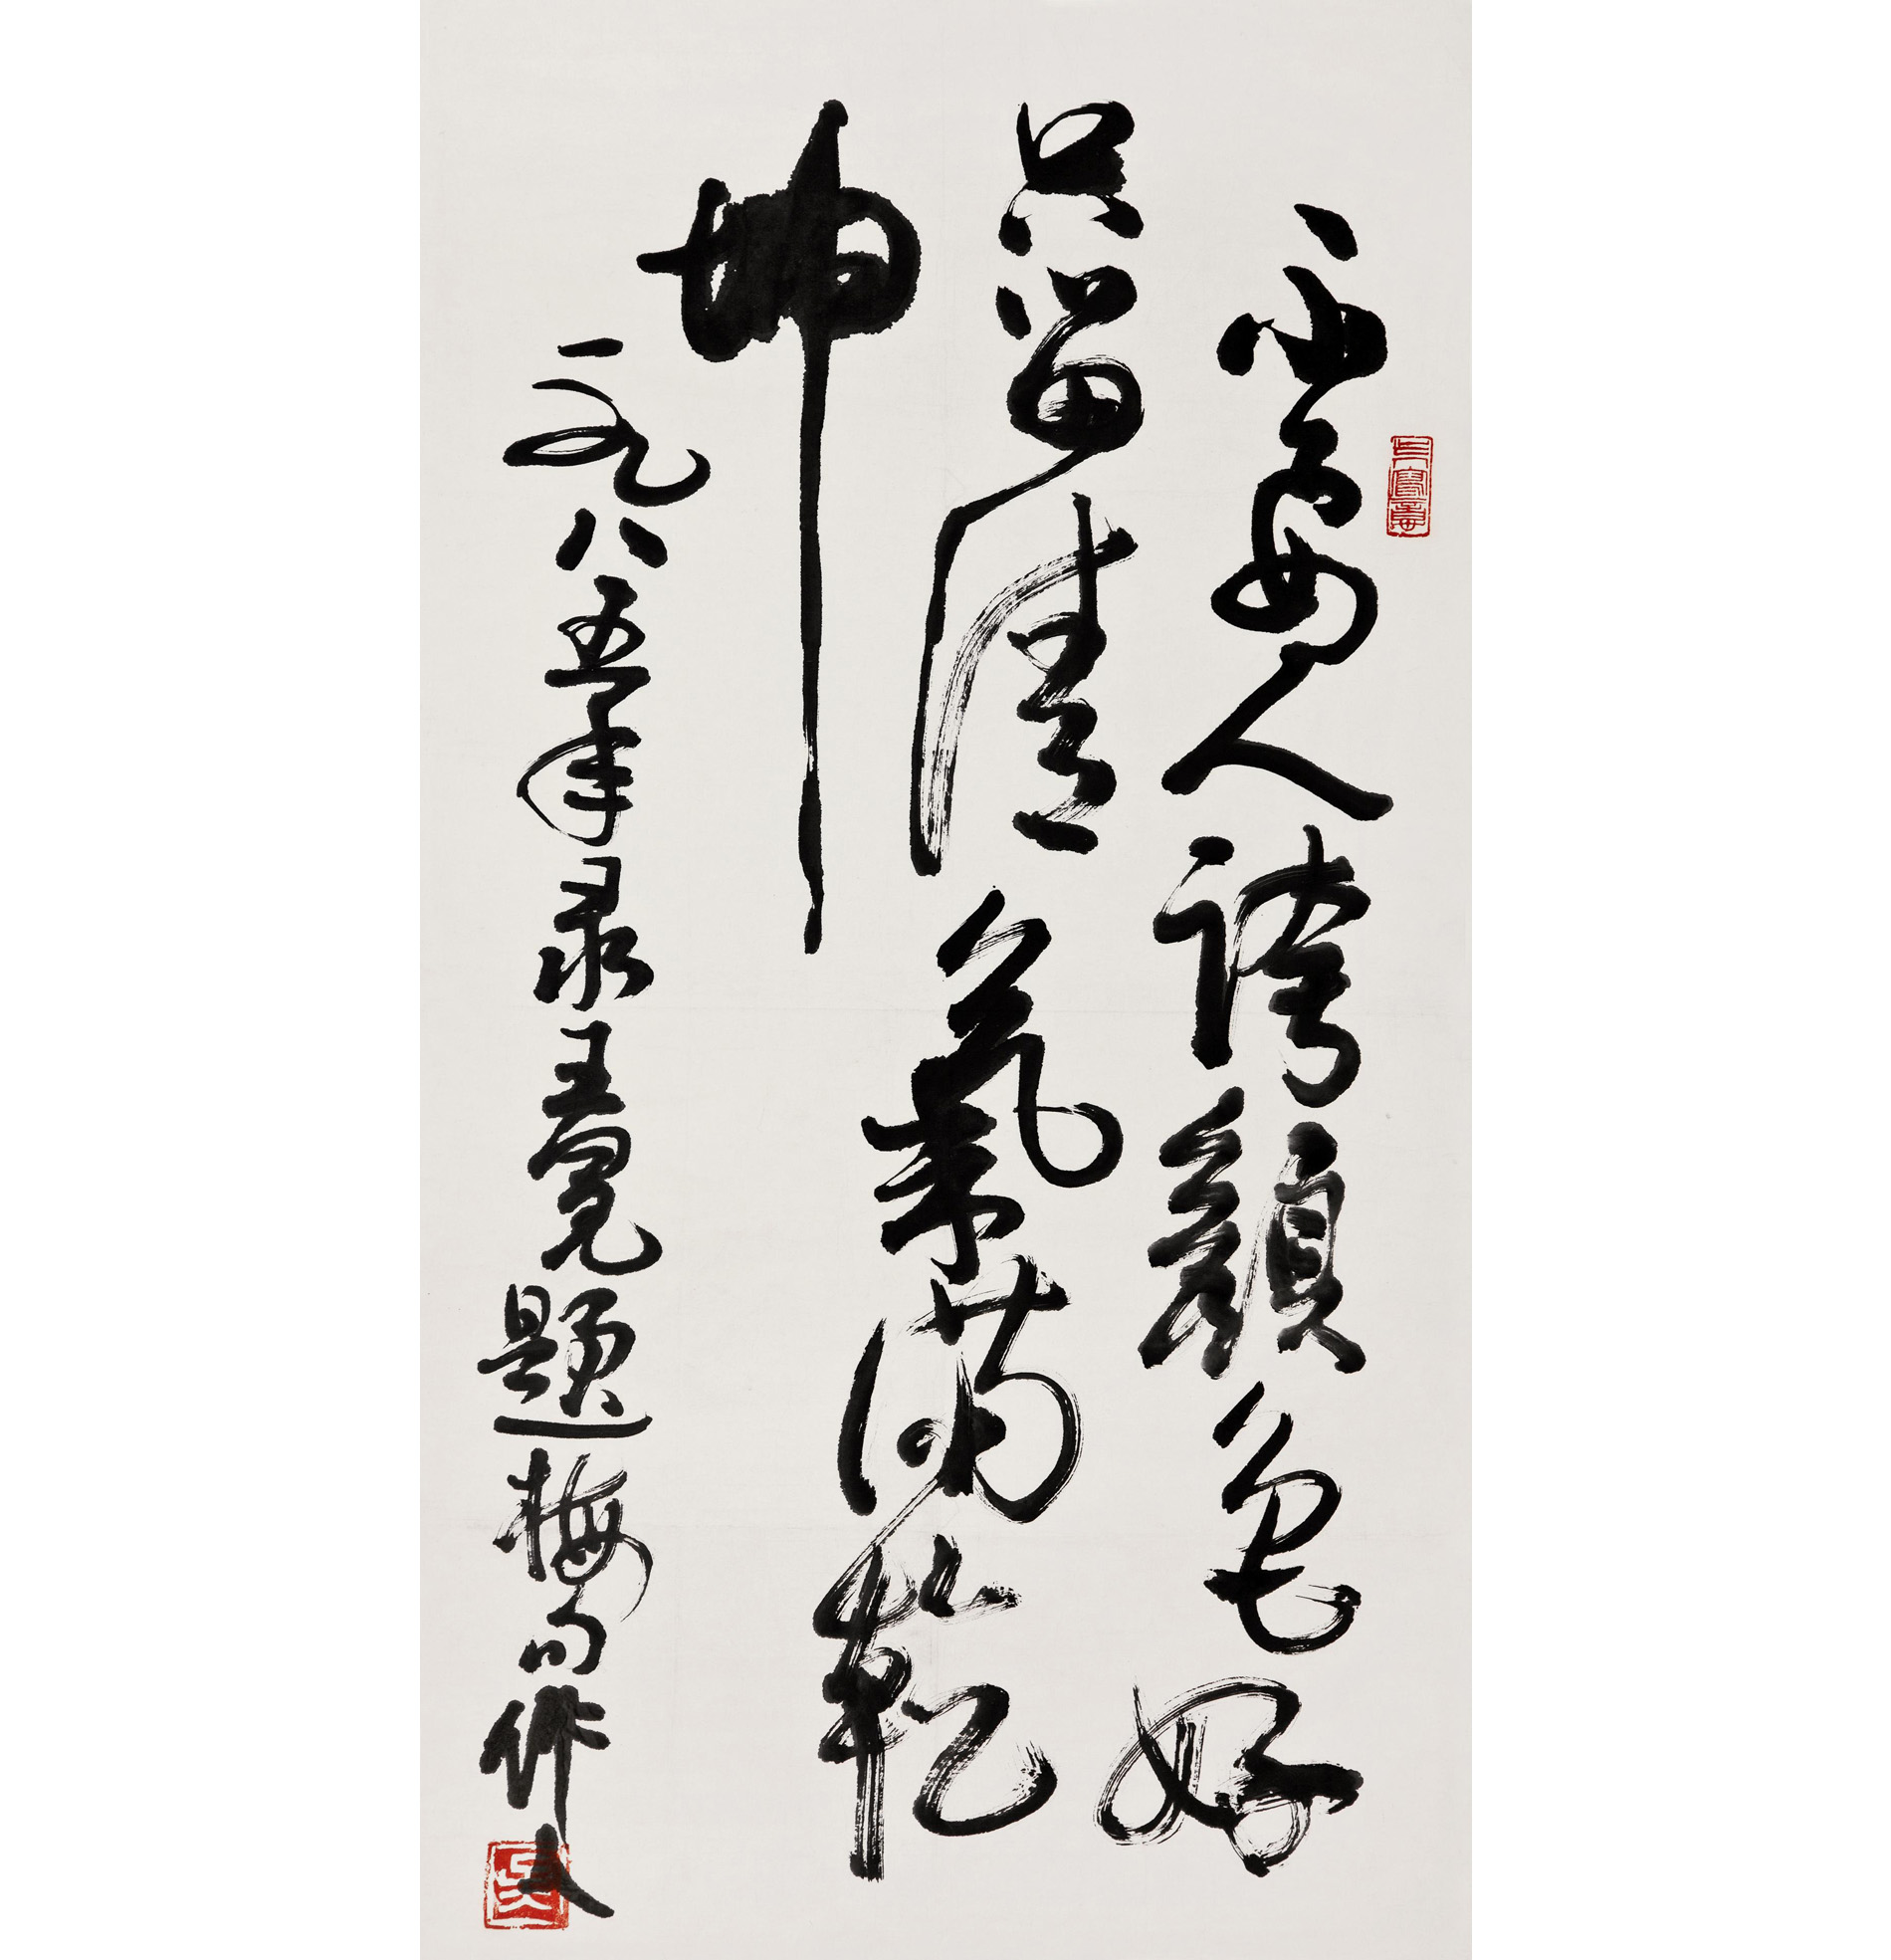 不要人誇顏色好
只留清氣滿乾
坤
一九八五年录王冕題梅句作人